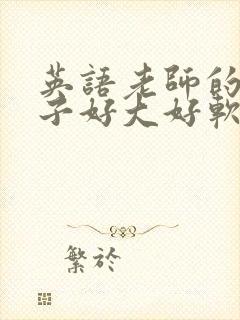 英語老師的
子好大好軟
繁於